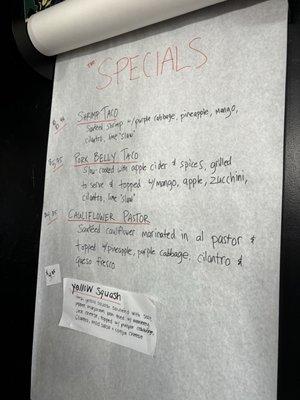 THE SPECIALS
SHRIMP TACO
Sauteed shrimp w/purple cabbage, pineapple, mango,
cilantro, lime "slaw"
PORK BELLY TACO
Slow cooked with apple cider & spices, grilled
to serve & topped w/mango, apple, zucchini,
cilantro, lime "slaw"
CAULIFLOWER PASTOR
Sauteed cauliflower marinated in al pastor &
topped w/pineapple, purple cabbage, cilantro &
queso fresco
Yellow Squash
yellow squash
jack cheese, topped w/ purple cabbage,
cilantro, salsa & cheese